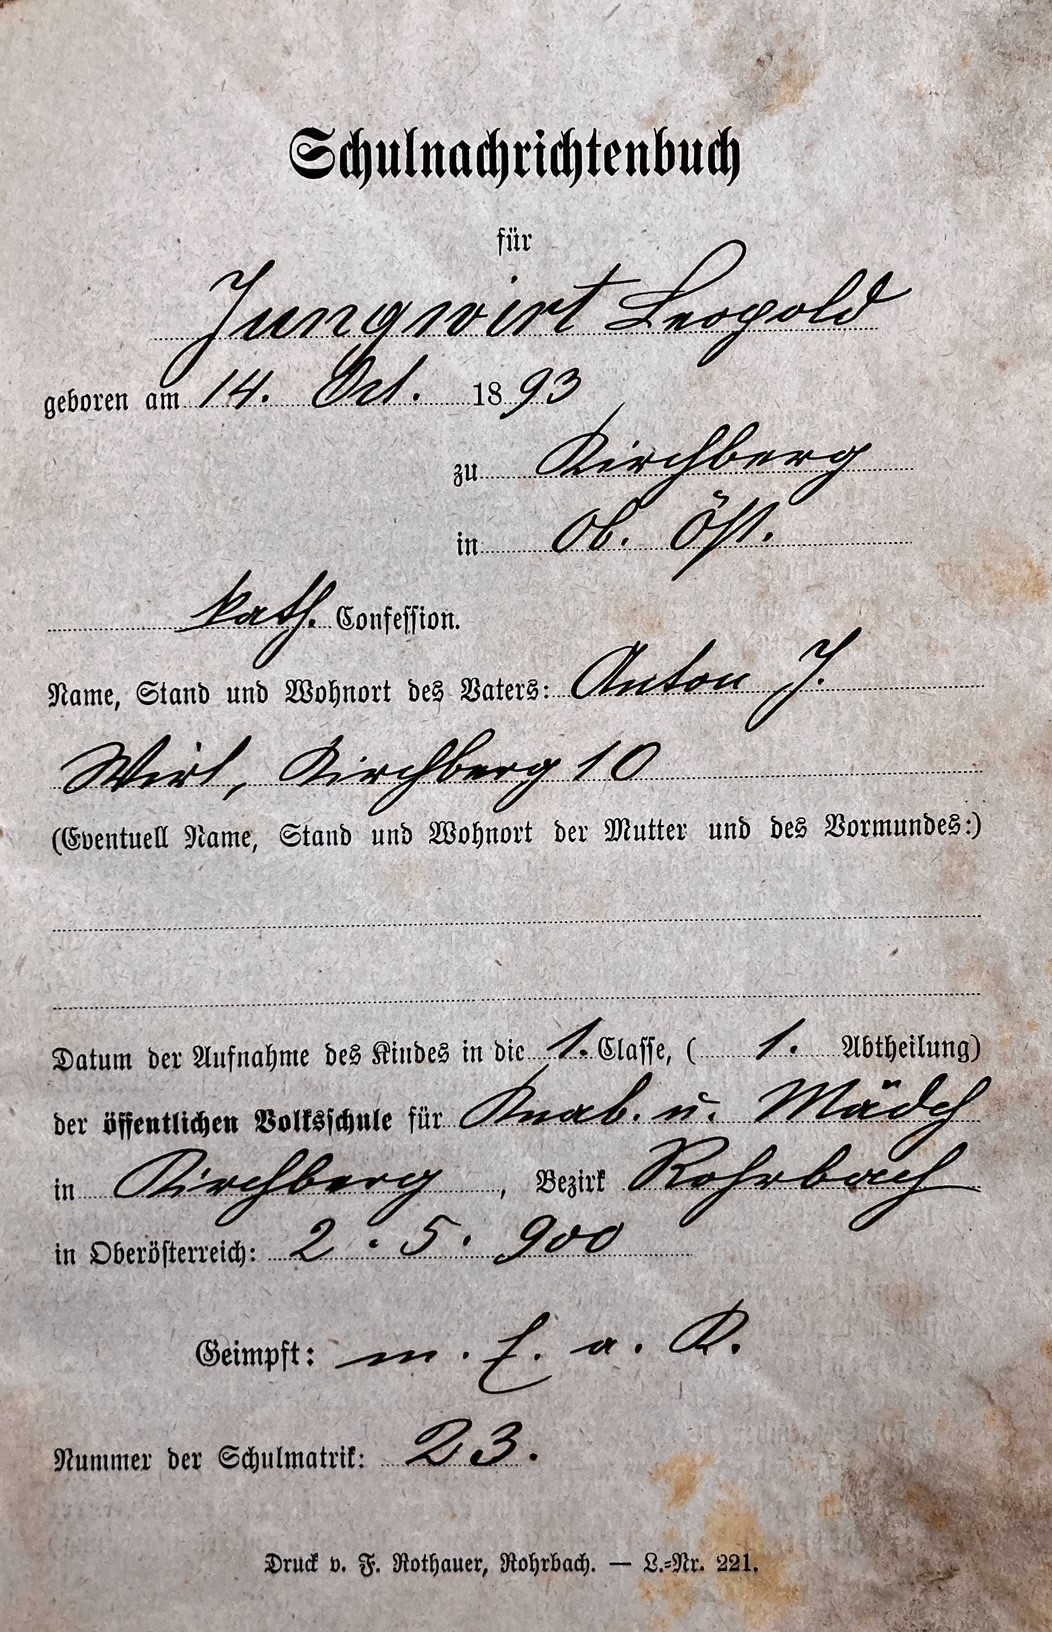 Schulnachrichtenbuch
für
Jungwirt Leopold
geboren am 14. Oct. 1893
zu Kirchberg
in Ob. Öst.
kath. Confession.
Name, Stand und Wohnort des Vaters: Anton J.
Wirt, Kirchberg 10
(Eventuell Name, Stand und Wohnort der Mutter und des Vormundes:)
Datum der Aufnahme des Kindes in die 1. Classe, ( 1. Abtheilung)
der öffentlichen Volksschule für Knab. u. Mädch
in Kirchberg, Bezirk Rohrbach
in Oberösterreich: 2. 5. 900
Geimpft: m. E. a. K.
Nummer der Schulmatrik: 23.
Druck v. F. Rothauer, Rohrbach. — L.-Nr. 221.